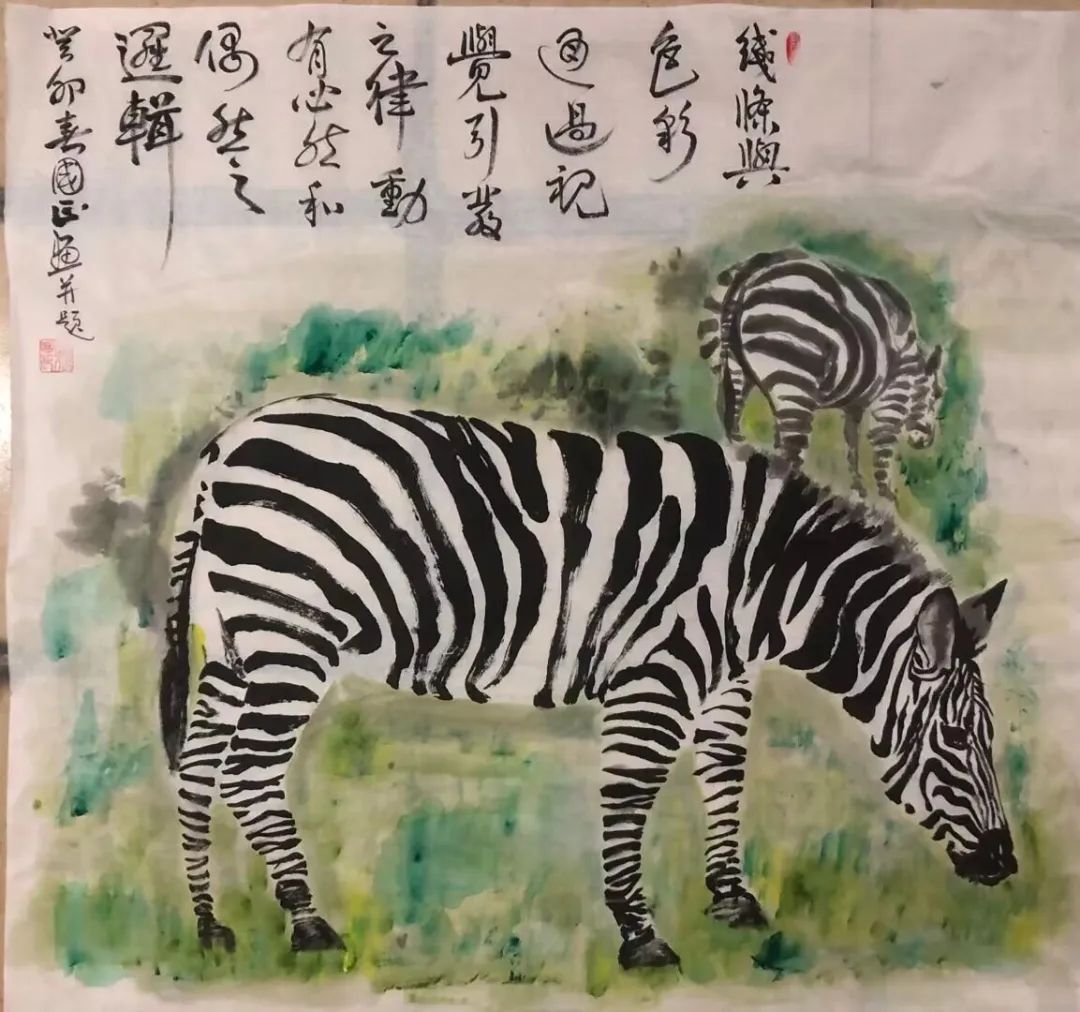 綫條與
色彩
通過視
覺引發
之律動
有必然和
偶然之
邏輯
癸卯春國正画并題